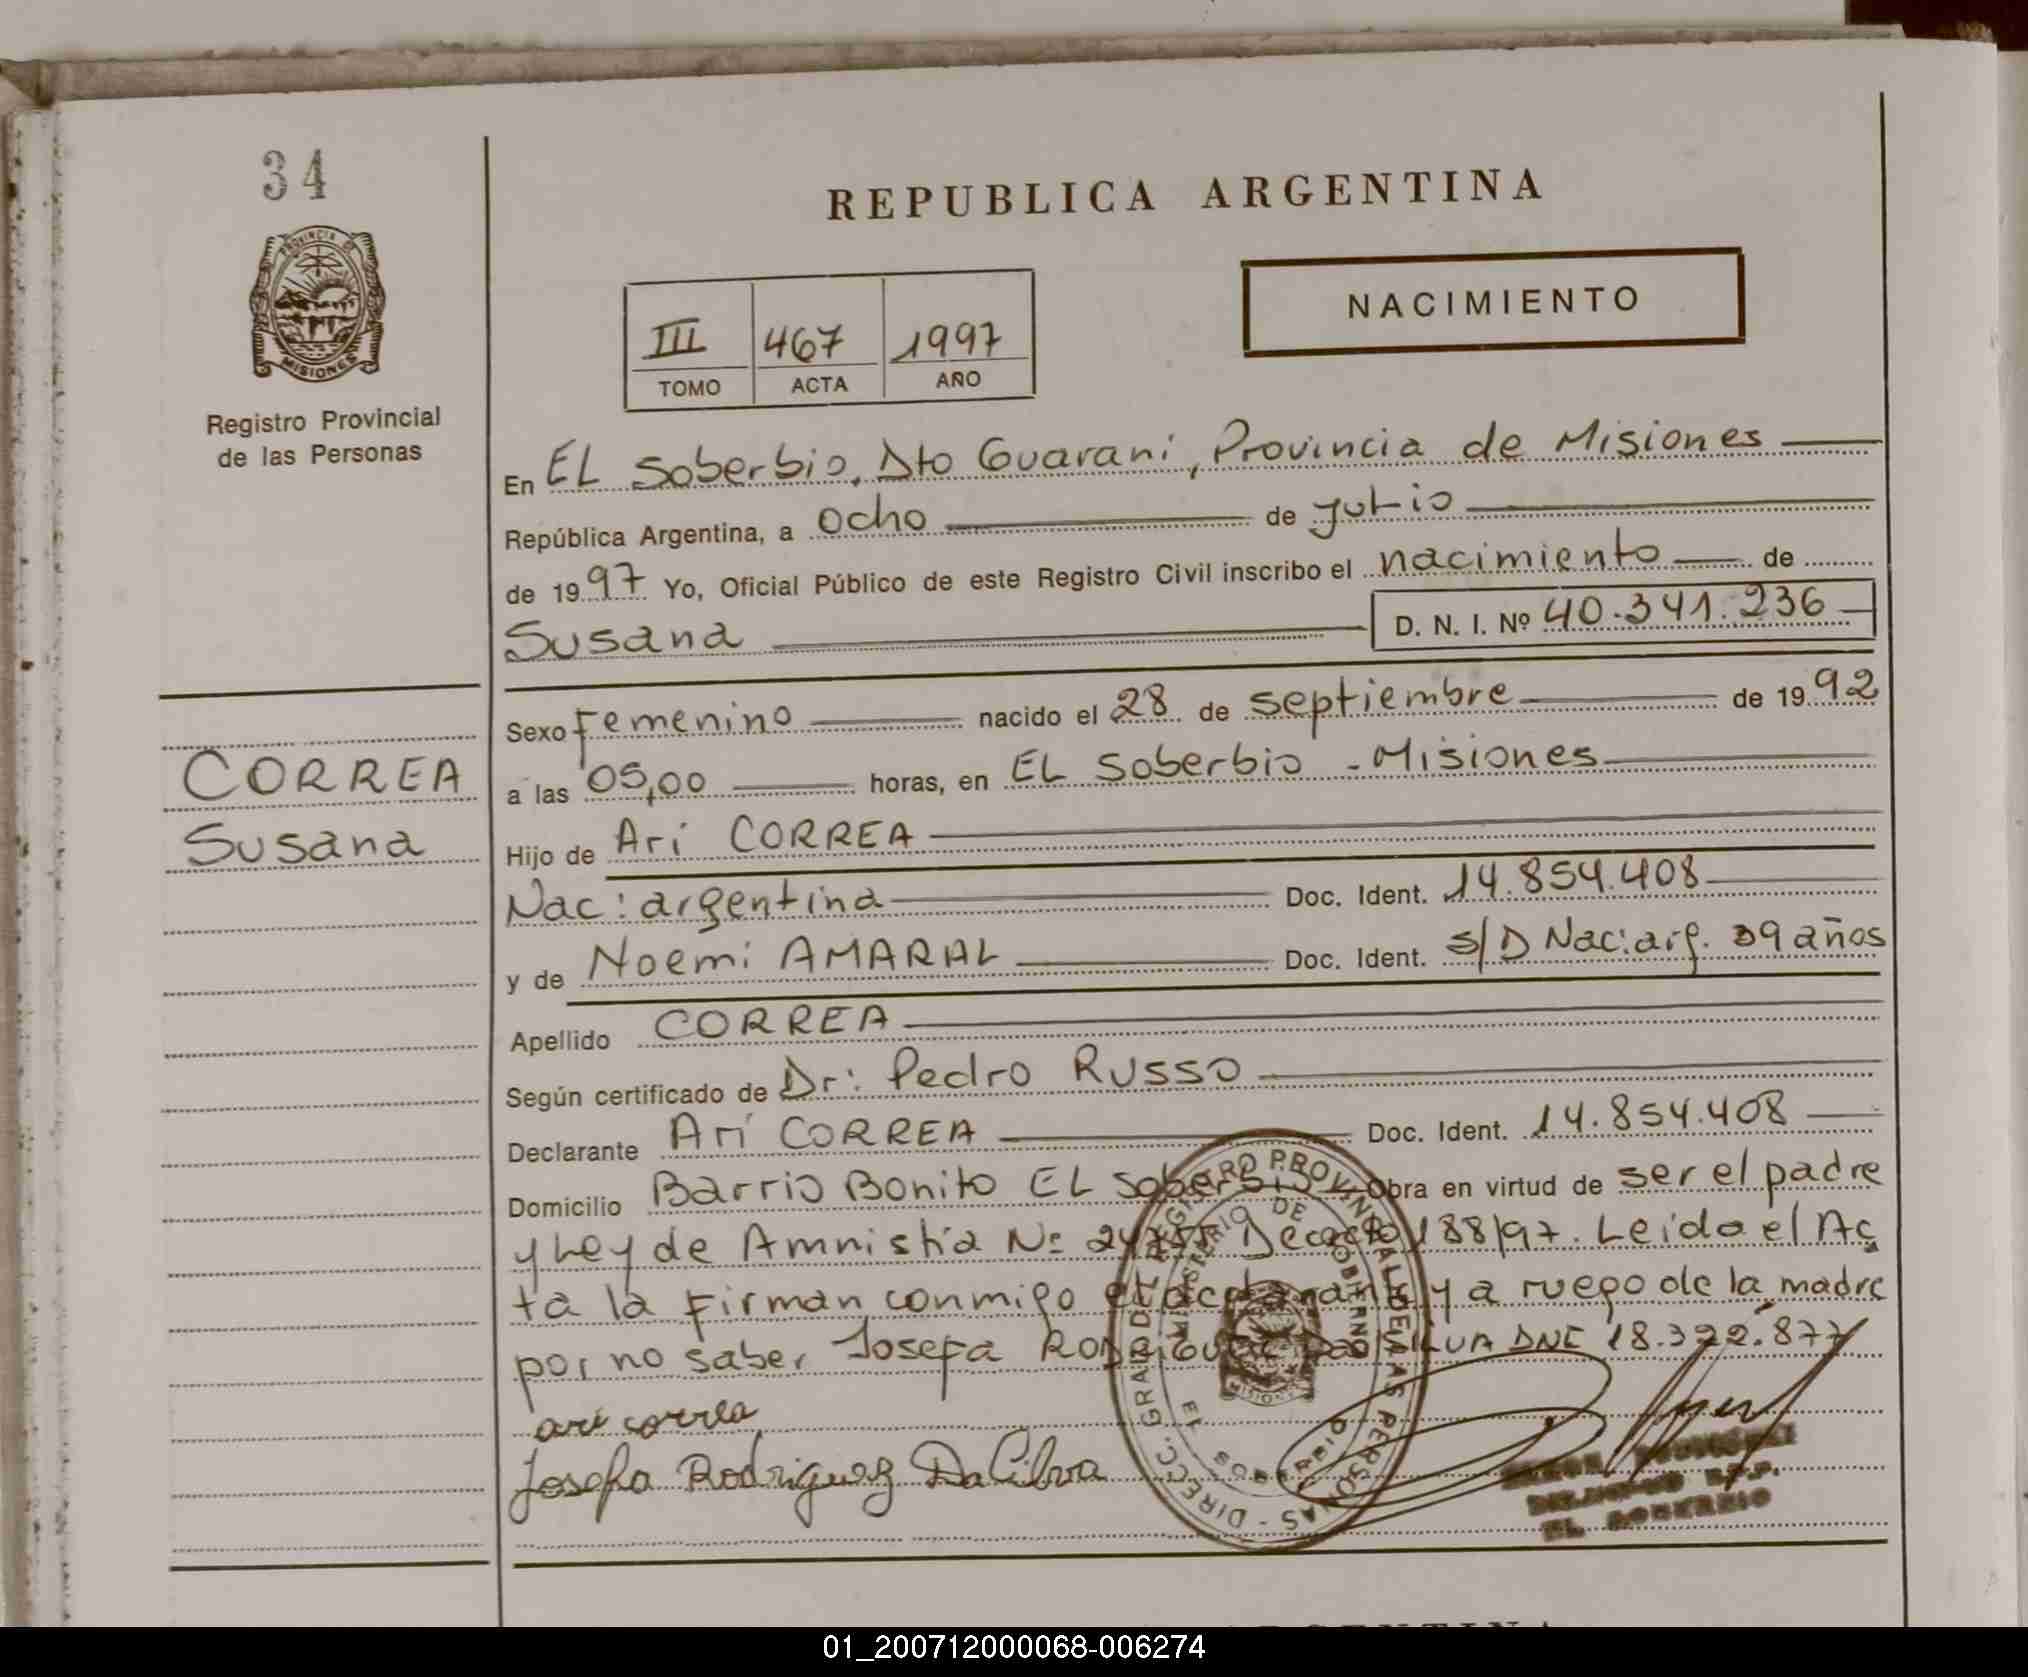 34
REPUBLICA ARGENTINA
PROVINCIA DE
MISIONES
NACIMIENTO
III 467 1997
TOMO ACTA AÑO
Registro Provincial
de las Personas
En EL Soberbio, Dto Guaraní, Provincia de Misiones
República Argentina, a Ocho de julio
de 1997 Yo, Oficial Público de este Registro Civil inscribo el nacimiento de
Susana D. N. I. Nº 40.341.236
Sexo Femenino nacido el 28 de septiembre de 1992
a las 05,00 horas, en EL Soberbio - Misiones
CORREA
Susana
Hijo de Ari CORREA
Nac: argentina Doc. Ident. 14.854.408
y de Noemi AMARAL Doc. Ident. S/D Nac: arg. 39 años
Apellido CORREA
Según certificado de Dr: Pedro RUSSO
Declarante Ari CORREA Doc. Ident. 14.854.408
Domicilio Barrio Bonito EL Soberbio Obra en virtud de ser el padre
y Ley de Amnistía Nº Decreto 188/97. Leida el Ac
ta la Firman conmigo el declarante y a ruego de la madre
por no saber Josefa RODRIGUEZ Da SILVA DNI 18.322.877
ari correa
Josefa Rodriguez Da Silva
DIRECC. GRAL. DEL REGISTRO PROVINCIAL DE LAS PERSONAS
MINISTERIO DE GOBIERNO
EL SOBERBIO
MISIONES
R.P.P.
EL SOBERBIO
01_200712000068-006274